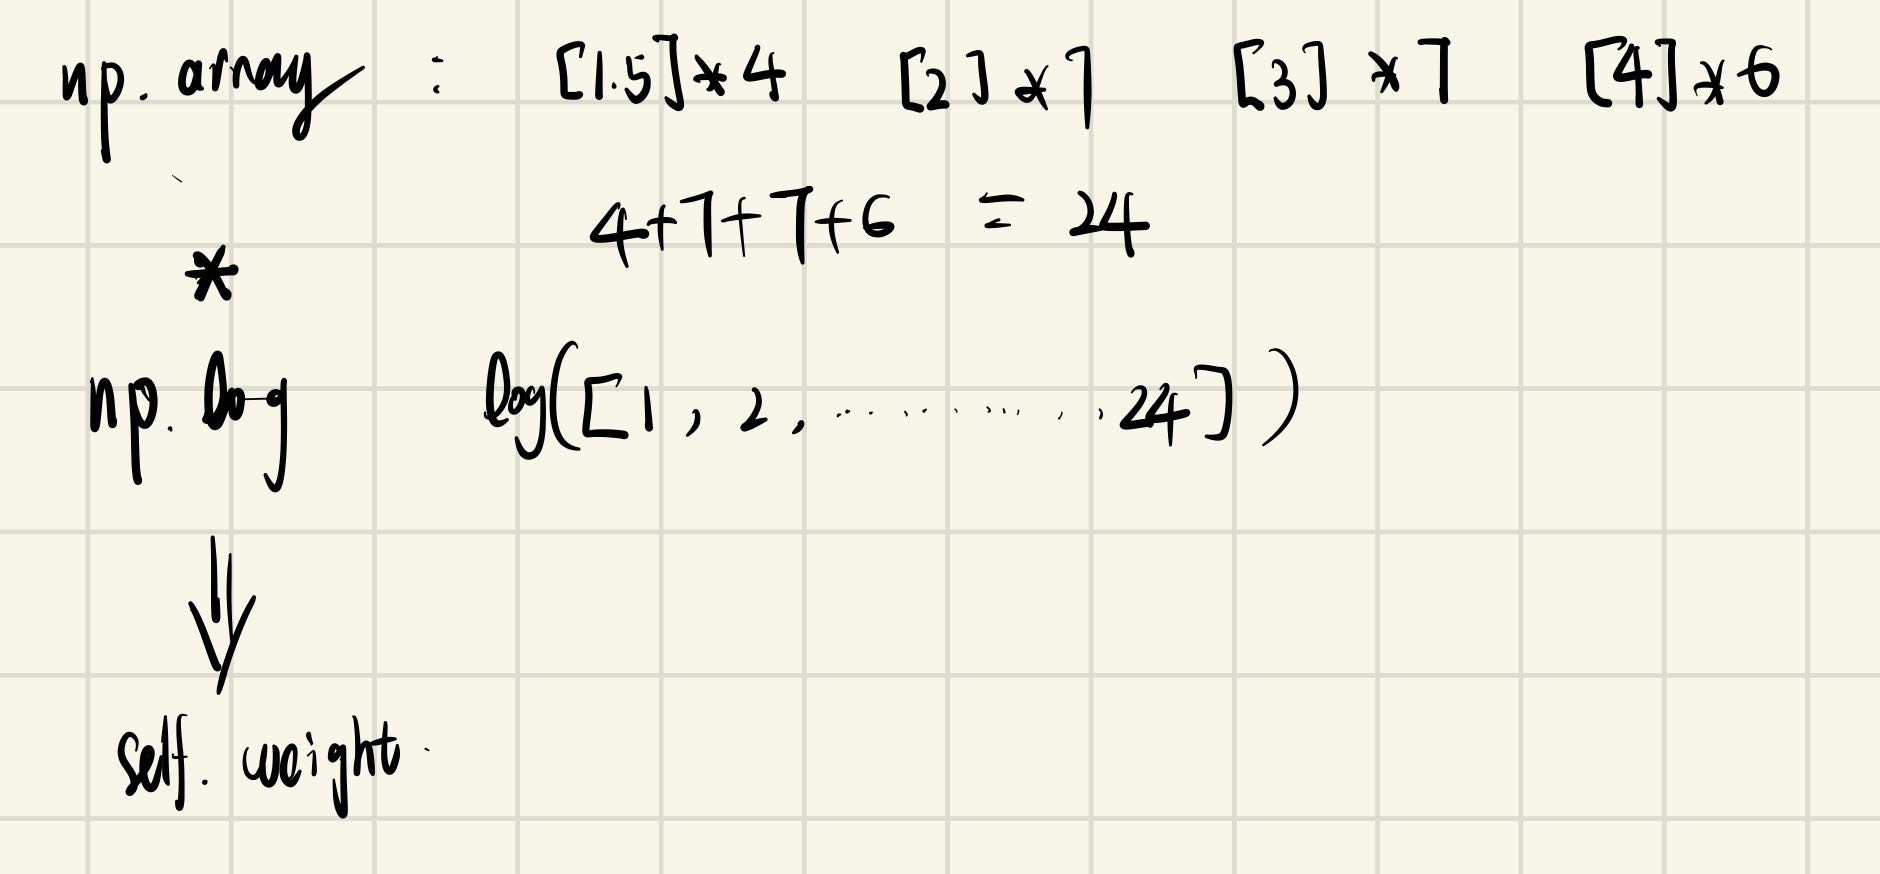 np. array : [1.5]*4 [2]*7 [3]*7 [4]*6
4+7+7+6 = 24
*
np. log log([1, 2, ........... 24])
self. weight